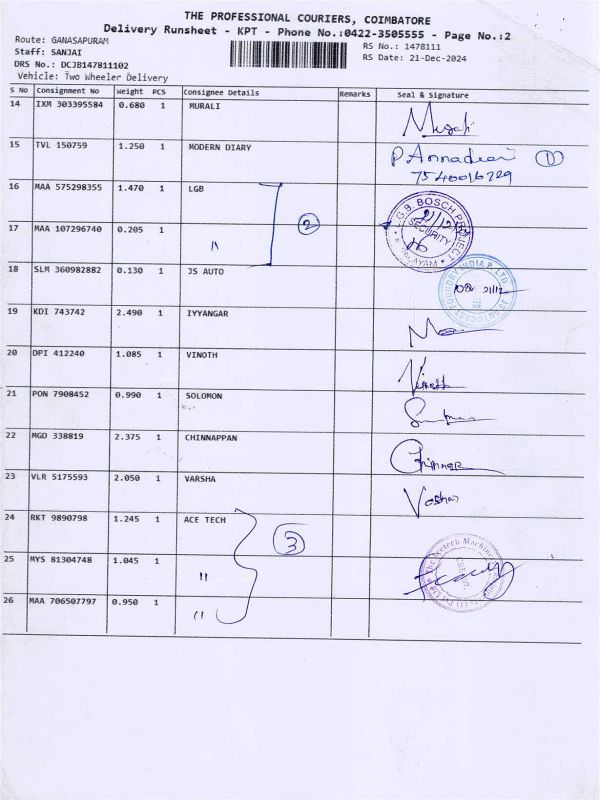 THE PROFESSIONAL COURIERS, COIMBATORE
Delivery Runsheet - KPT - Phone No.:0422-3505555 - Page No.:2
Route: GANASAPURAM
RS No.: 1478111
Staff: SANJAI
RS Date: 21-Dec-2024
DRS No.: DCJB147811102
Vehicle: Two Wheeler Delivery
S No Consignment No Weight PCS Consignee Details Remarks Seal & Signature
14 IXM 303395584 0.680 1 MURALI
15 TVL 150759 1.250 1 MODERN DIARY P Annadurai 1
7540016729
16 MAA 575298355 1.470 1 LGB
2
17 MAA 107296740 0.205 1 "
L.G.B. BOSCH PROJECT
SECURITY
18 SLM 360982882 0.130 1 JS AUTO
JS AUTOCAST FOUNDRY INDIA P. LTD.
19 KDI 743742 2.490 1 IYYANGAR
20 DPI 412240 1.085 1 VINOTH Vinoth
21 PON 7908452 0.990 1 SOLOMON
22 MGD 338819 2.375 1 CHINNAPPAN
23 VLR 5175593 2.050 1 VARSHA
24 RKT 9890798 1.245 1 ACE TECH 3
25 MYS 81304748 1.045 1 "
26 MAA 706507797 0.950 1 "